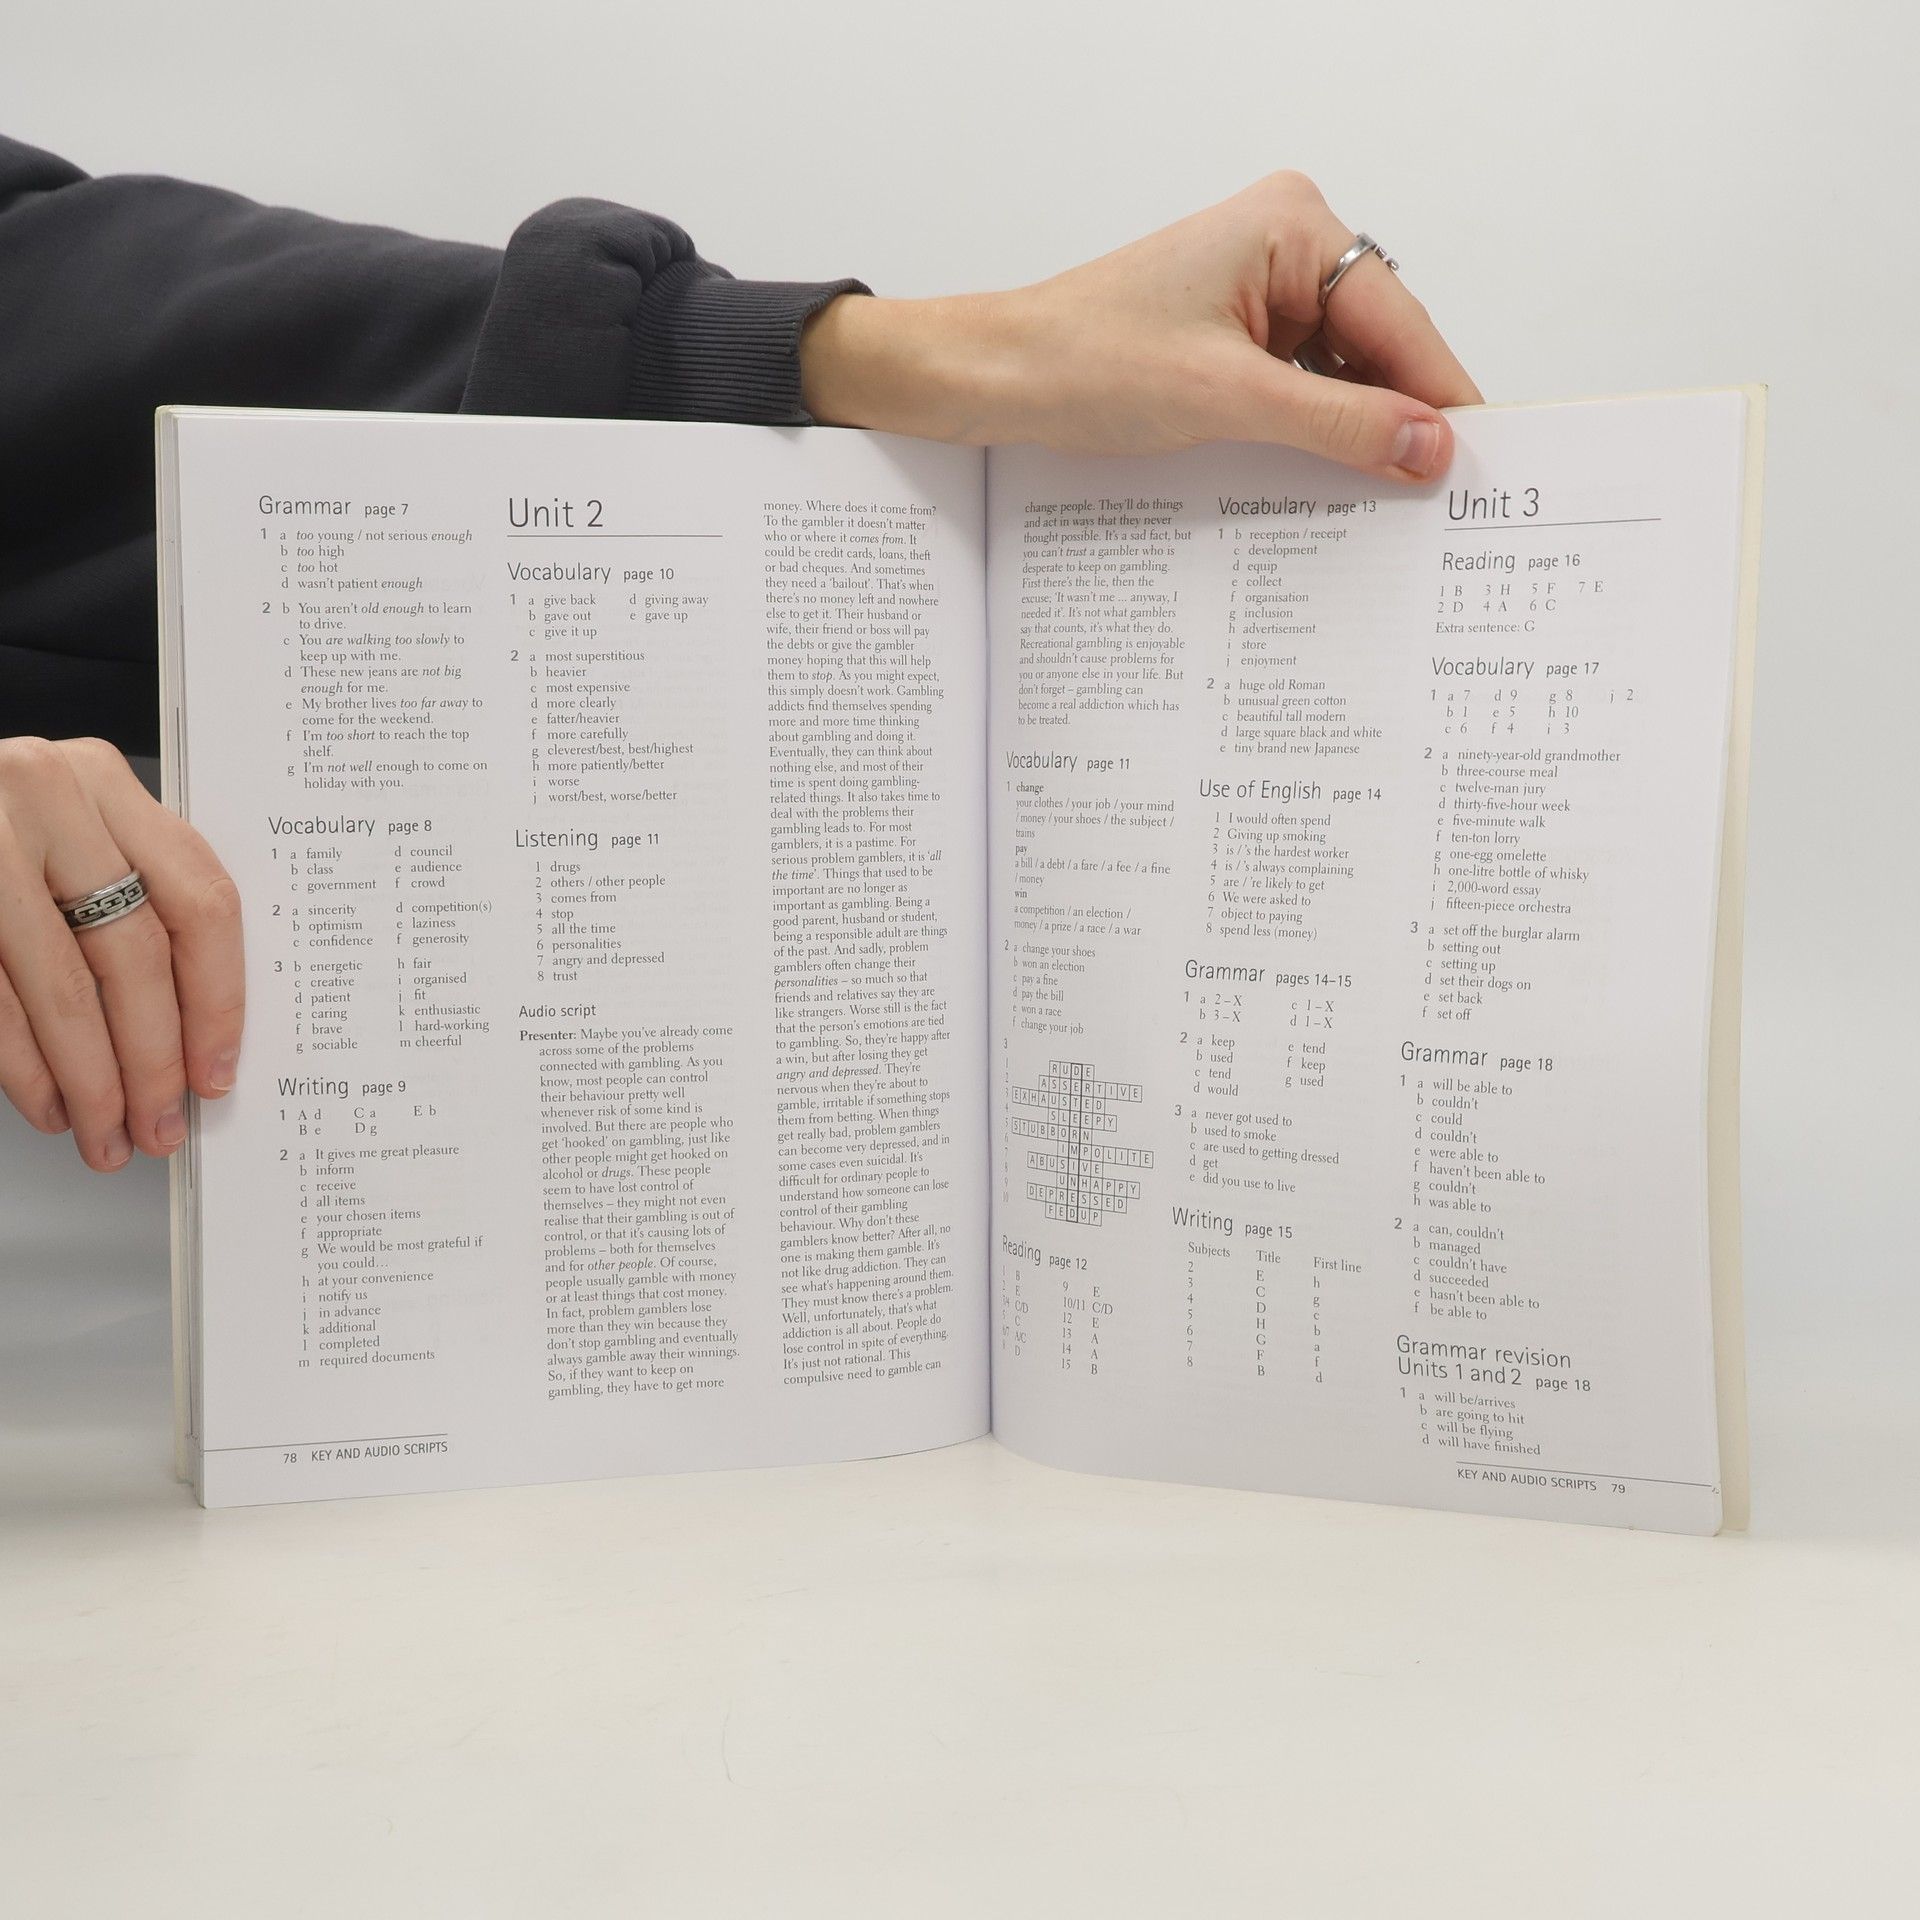 Grammar page 7
1 a too young / not serious enough
b too high
c too hot
d wasn't patient enough
2 b You aren't old enough to learn
to drive.
c You are walking too slowly to
keep up with me.
d These new jeans are not big
enough for me.
e My brother lives too far away to
come for the weekend.
f I'm too short to reach the top
shelf.
g I'm not well enough to come on
holiday with you.
Vocabulary page 8
1 a family d council
b class e audience
c government f crowd
2 a sincerity d competition(s)
b optimism e laziness
c confidence f generosity
3 b energetic h fair
c creative i organised
d patient j fit
e caring k enthusiastic
f brave l hard-working
g sociable m cheerful
Writing page 9
1 A d C a E b
B e D g
2 a It gives me great pleasure
b inform
c receive
d all items
e your chosen items
f appropriate
g We would be most grateful if
you could…
h at your convenience
i notify us
j in advance
k additional
l completed
m required documents
78 KEY AND AUDIO SCRIPTS
Unit 2
Vocabulary page 10
1 a give back d giving away
b gave out e gave up
c give it up
2 a most superstitious
b heavier
c most expensive
d more clearly
e fatter/heavier
f more carefully
g cleverest/best, best/highest
h more patiently/better
i worse
j worst/best, worse/better
Listening page 11
1 drugs
2 others / other people
3 comes from
4 stop
5 all the time
6 personalities
7 angry and depressed
8 trust
Audio script
Presenter: Maybe you've already come
across some of the problems
connected with gambling. As you
know, most people can control
their behaviour pretty well
whenever risk of some kind is
involved. But there are people who
get 'hooked' on gambling, just like
other people might get hooked on
alcohol or drugs. These people
seem to have lost control of
themselves – they might not even
realise that their gambling is out of
control, or that it's causing lots of
problems – both for themselves
and for other people. Of course,
people usually gamble with money
or at least things that cost money.
In fact, problem gamblers lose
more than they win because they
don't stop gambling and eventually
always gamble away their winnings.
So, if they want to keep on
gambling, they have to get more
money. Where does it come from?
To the gambler it doesn't matter
who or where it comes from. It
could be credit cards, loans, theft
or bad cheques. And sometimes
they need a 'bailout'. That's when
there's no money left and nowhere
else to get it. Their husband or
wife, their friend or boss will pay
the debts or give the gambler
money hoping that this will help
them to stop. As you might expect,
this simply doesn't work. Gambling
addicts find themselves spending
more and more time thinking
about gambling and doing it.
Eventually, they can think about
nothing else, and most of their
time is spent doing gambling-
related things. It also takes time to
deal with the problems their
gambling leads to. For most
gamblers, it is a pastime. For
serious problem gamblers, it is 'all
the time'. Things that used to be
important are no longer as
important as gambling. Being a
good parent, husband or student,
being a responsible adult are things
of the past. And sadly, problem
gamblers often change their
personalities – so much so that
friends and relatives say they are
like strangers. Worse still is the fact
that the person's emotions are tied
to gambling. So, they're happy after
a win, but after losing they get
angry and depressed. They're
nervous when they're about to
gamble, irritable if something stops
them from betting. When things
get really bad, problem gamblers
can become very depressed, and in
some cases even suicidal. It's
difficult for ordinary people to
understand how someone can lose
control of their gambling
behaviour. Why don't these
gamblers know better? After all, no
one is making them gamble. It's
not like drug addiction. They can
see what's happening around them.
They must know there's a problem.
Well, unfortunately, that's what
addiction is all about. People do
lose control in spite of everything.
It's just not rational. This
compulsive need to gamble can
change people. They'll do things
and act in ways that they never
thought possible. It's a sad fact, but
you can't trust a gambler who is
desperate to keep on gambling.
First there's the lie, then the
excuse; 'It wasn't me ... anyway, I
needed it'. It's not what gamblers
say that counts, it's what they do.
Recreational gambling is enjoyable
and shouldn't cause problems for
you or anyone else in your life. But
don't forget – gambling can
become a real addiction which has
to be treated.
Vocabulary page 11
1 change
your clothes / your job / your mind
/ money / your shoes / the subject /
trains
pay
a bill / a debt / a fare / a fee / a fine
/ money
win
a competition / an election /
money / a prize / a race / a war
2 a change your shoes
b won an election
c pay a fine
d pay the bill
e won a race
f change your job
3
1 RUDE
2 ASSERTIVE
3 EXHAUSTED
4 SLEEPY
5 STUBBORN
6 IMPOLITE
7 ABUSIVE
8 UNHAPPY
9 DEPRESSED
10 FEDUP
Reading page 12
1 B 9 E
2 E 10/11 C/D
3/4 C/D 12 E
5 C 13 A
6/7 A/C 14 A
8 D 15 B
Vocabulary page 13
1 b reception / receipt
c development
d equip
e collect
f organisation
g inclusion
h advertisement
i store
j enjoyment
2 a huge old Roman
b unusual green cotton
c beautiful tall modern
d large square black and white
e tiny brand new Japanese
Use of English page 14
1 I would often spend
2 Giving up smoking
3 is / 's the hardest worker
4 is / 's always complaining
5 are / 're likely to get
6 We were asked to
7 object to paying
8 spend less (money)
Grammar pages 14–15
1 a 2 – X c 1 – X
b 3 – X d 1 – X
2 a keep e tend
b used f keep
c tend g used
d would
3 a never got used to
b used to smoke
c are used to getting dressed
d get
e did you use to live
Writing page 15
Subjects Title First line
2 E h
3 C g
4 D c
5 H b
6 G a
7 F f
8 B d
Unit 3
Reading page 16
1 B 3 H 5 F 7 E
2 D 4 A 6 C
Extra sentence: G
Vocabulary page 17
1 a 7 d 9 g 8 j 2
b 1 e 5 h 10
c 6 f 4 i 3
2 a ninety-year-old grandmother
b three-course meal
c twelve-man jury
d thirty-five-hour week
e five-minute walk
f ten-ton lorry
g one-egg omelette
h one-litre bottle of whisky
i 2,000-word essay
j fifteen-piece orchestra
3 a set off the burglar alarm
b setting out
c setting up
d set their dogs on
e set back
f set off
Grammar page 18
1 a will be able to
b couldn't
c could
d couldn't
e were able to
f haven't been able to
g couldn't
h was able to
2 a can, couldn't
b managed
c couldn't have
d succeeded
e hasn't been able to
f be able to
Grammar revision
Units 1 and 2 page 18
1 a will be/arrives
b are going to hit
c will be flying
d will have finished
KEY AND AUDIO SCRIPTS 79